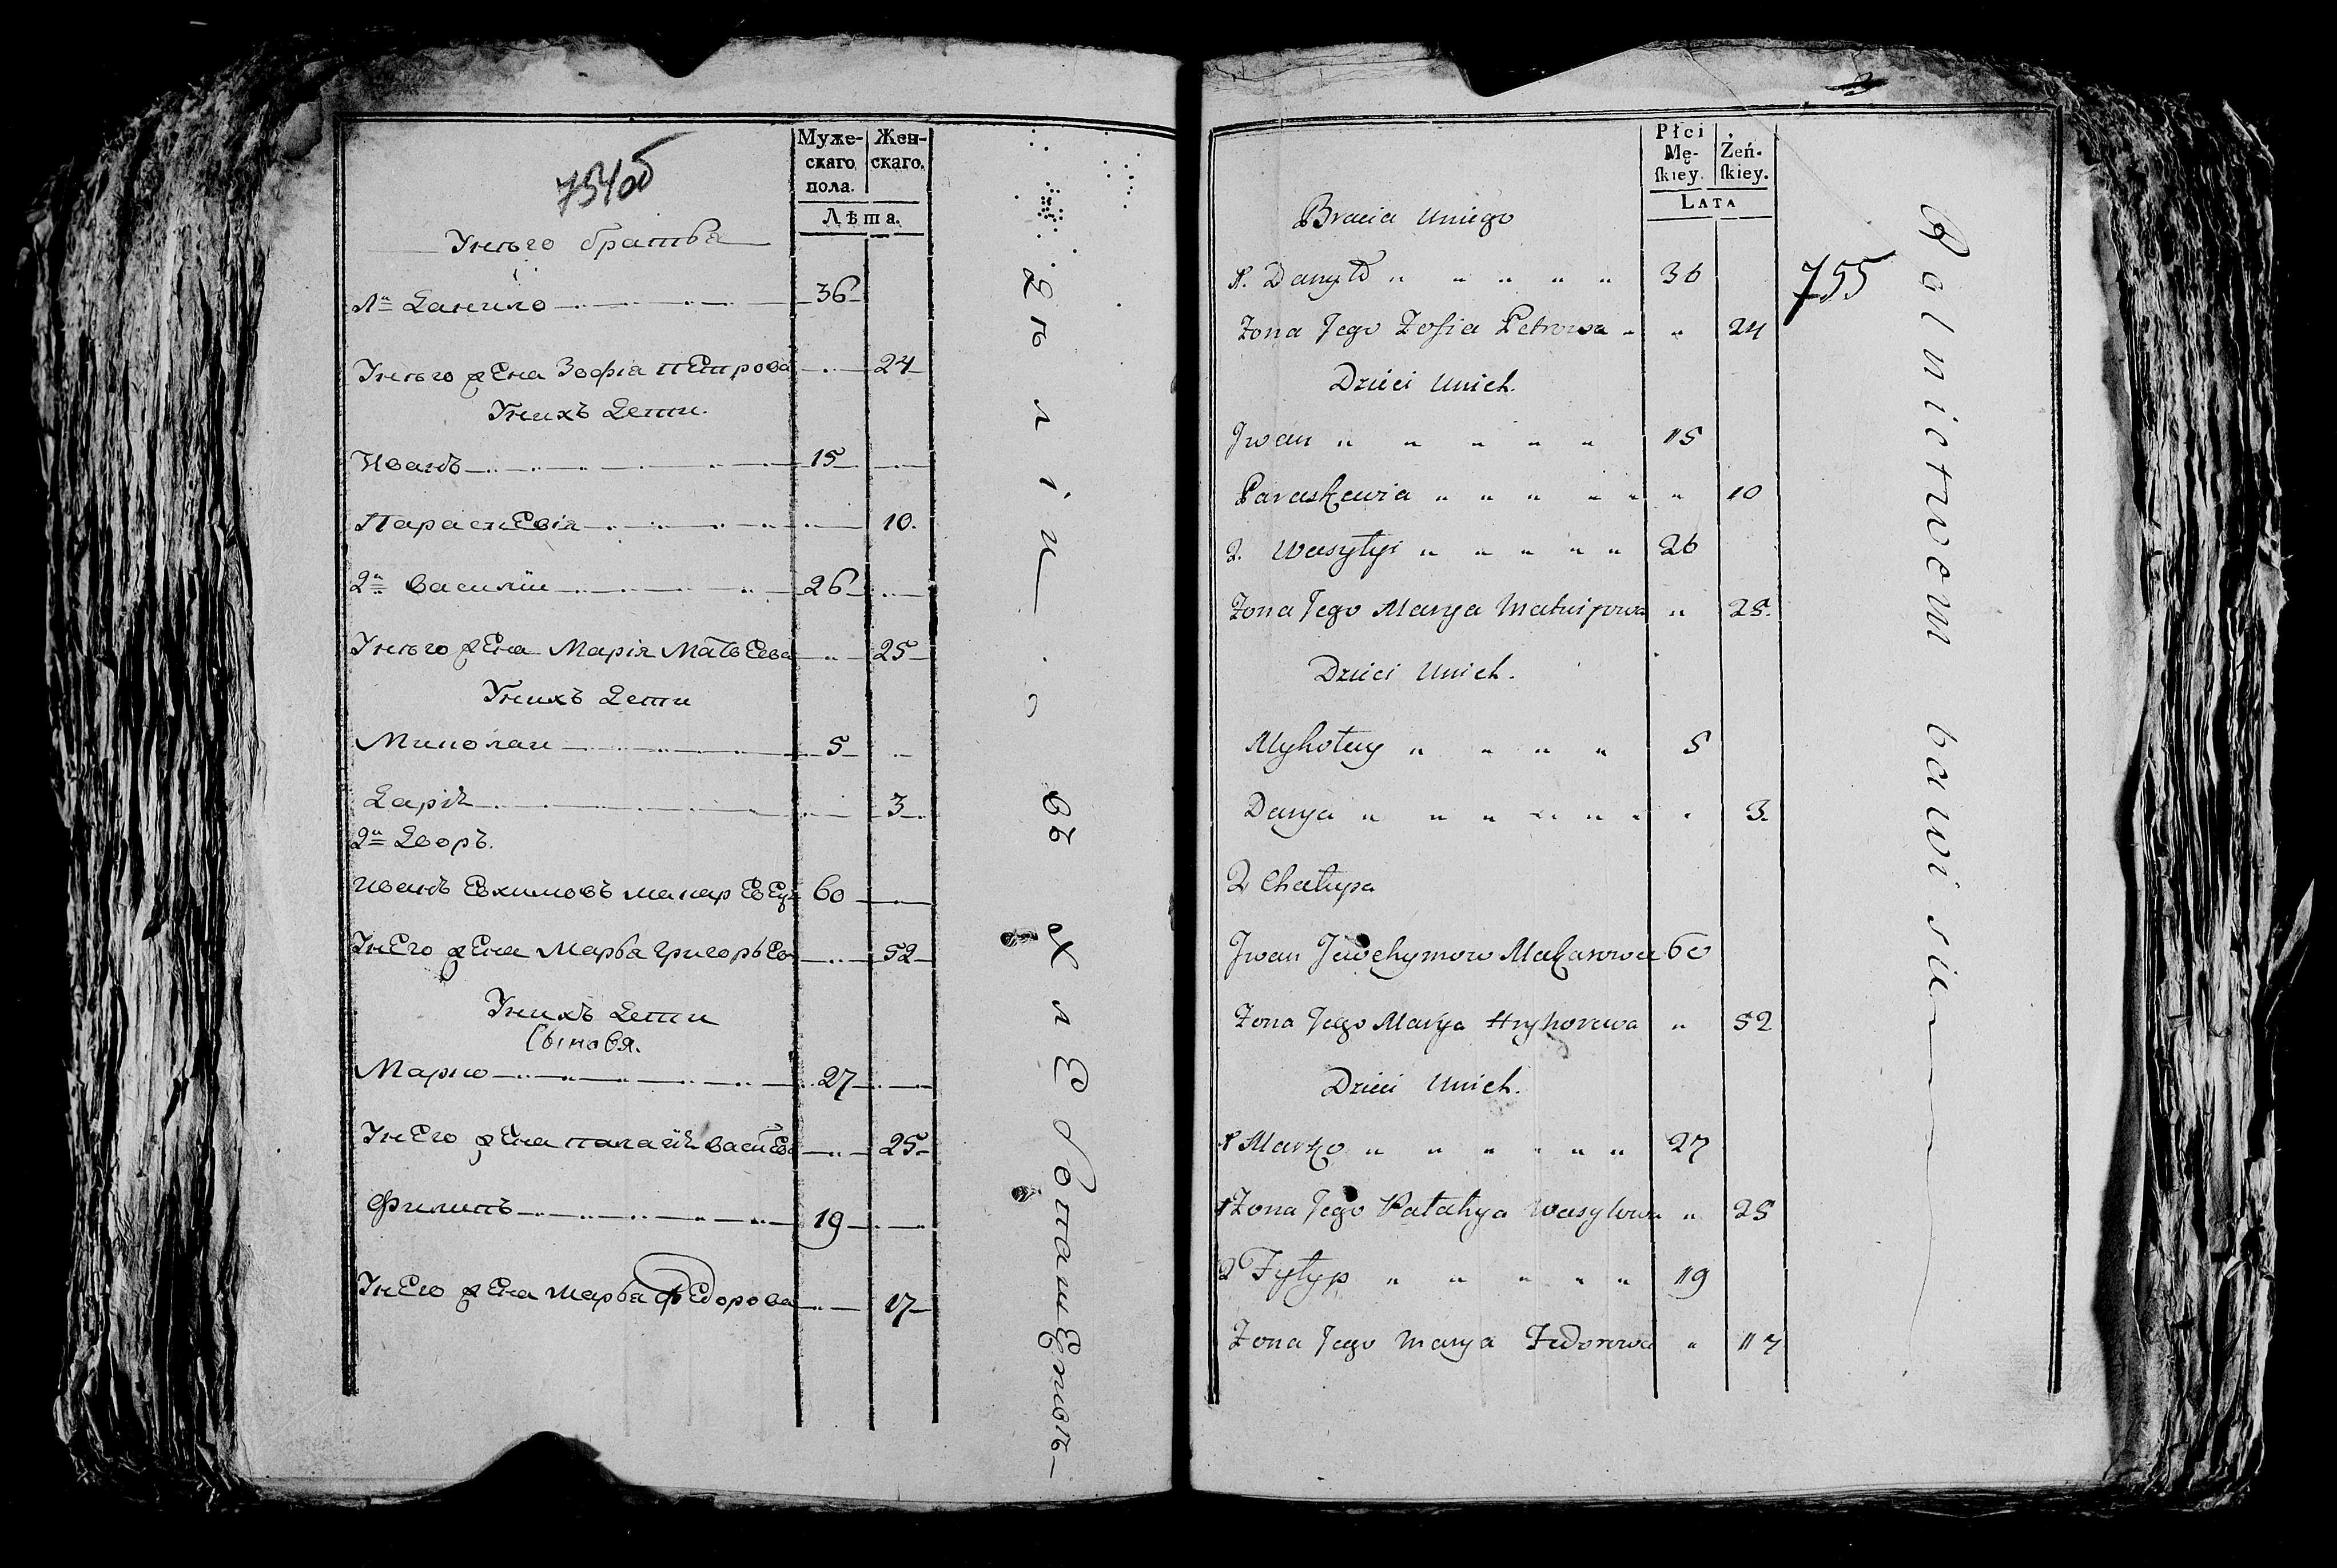 754об
Муже-
скаго
пола.
Жен-
скаго.
Лѣта.
Унѣго братья
1й Данило 36
Унѣго жена Зофія петрова 24
Унихъ Дети.
Иванъ 15
Параскевія 10.
2й Василій 26
Унѣго жена Марія Матвеева 25
Унихъ Дети
Миколай 5
Дарія 3
2й Дворъ.
Иванъ Евхимовъ 60
Унего жена Марья григорьев 52
Унихъ Дети
Сыновя.
Марко 27
Унего жена 25
Филипъ 19
Унего жена марья федорова 17
въ хлебопашенстве
Płci
Mę-
skiey.
Żeń-
skiey.
LATA
755
Bracia Uniego
1. Danyło " " " " " 36
Zona Jego Zofia Petrowa " " 24
Dzieci Unich.
Jwan " " " " " 15
Paraskewia " " " " " " 10
2. Wasylyi " " " " " 26
Zona Jego Marya Matwijowa " 25.
Dzieci Unich.
Mykołay " " " " 5
Darya " " " " " " " " 3.
2 Chałupa
Jwan Jewchymow Makarowa 60
Zona Jego Marya Hryhorowa " 52
Dzieci Unich.
1 Marko " " " " " " 27
Zona Jego Pałahya Wasylowa " 25
2 Fyłyp " " " " " 19
Zona Jego Marya Fedorowa " 17
Rolnictwem bawi sie